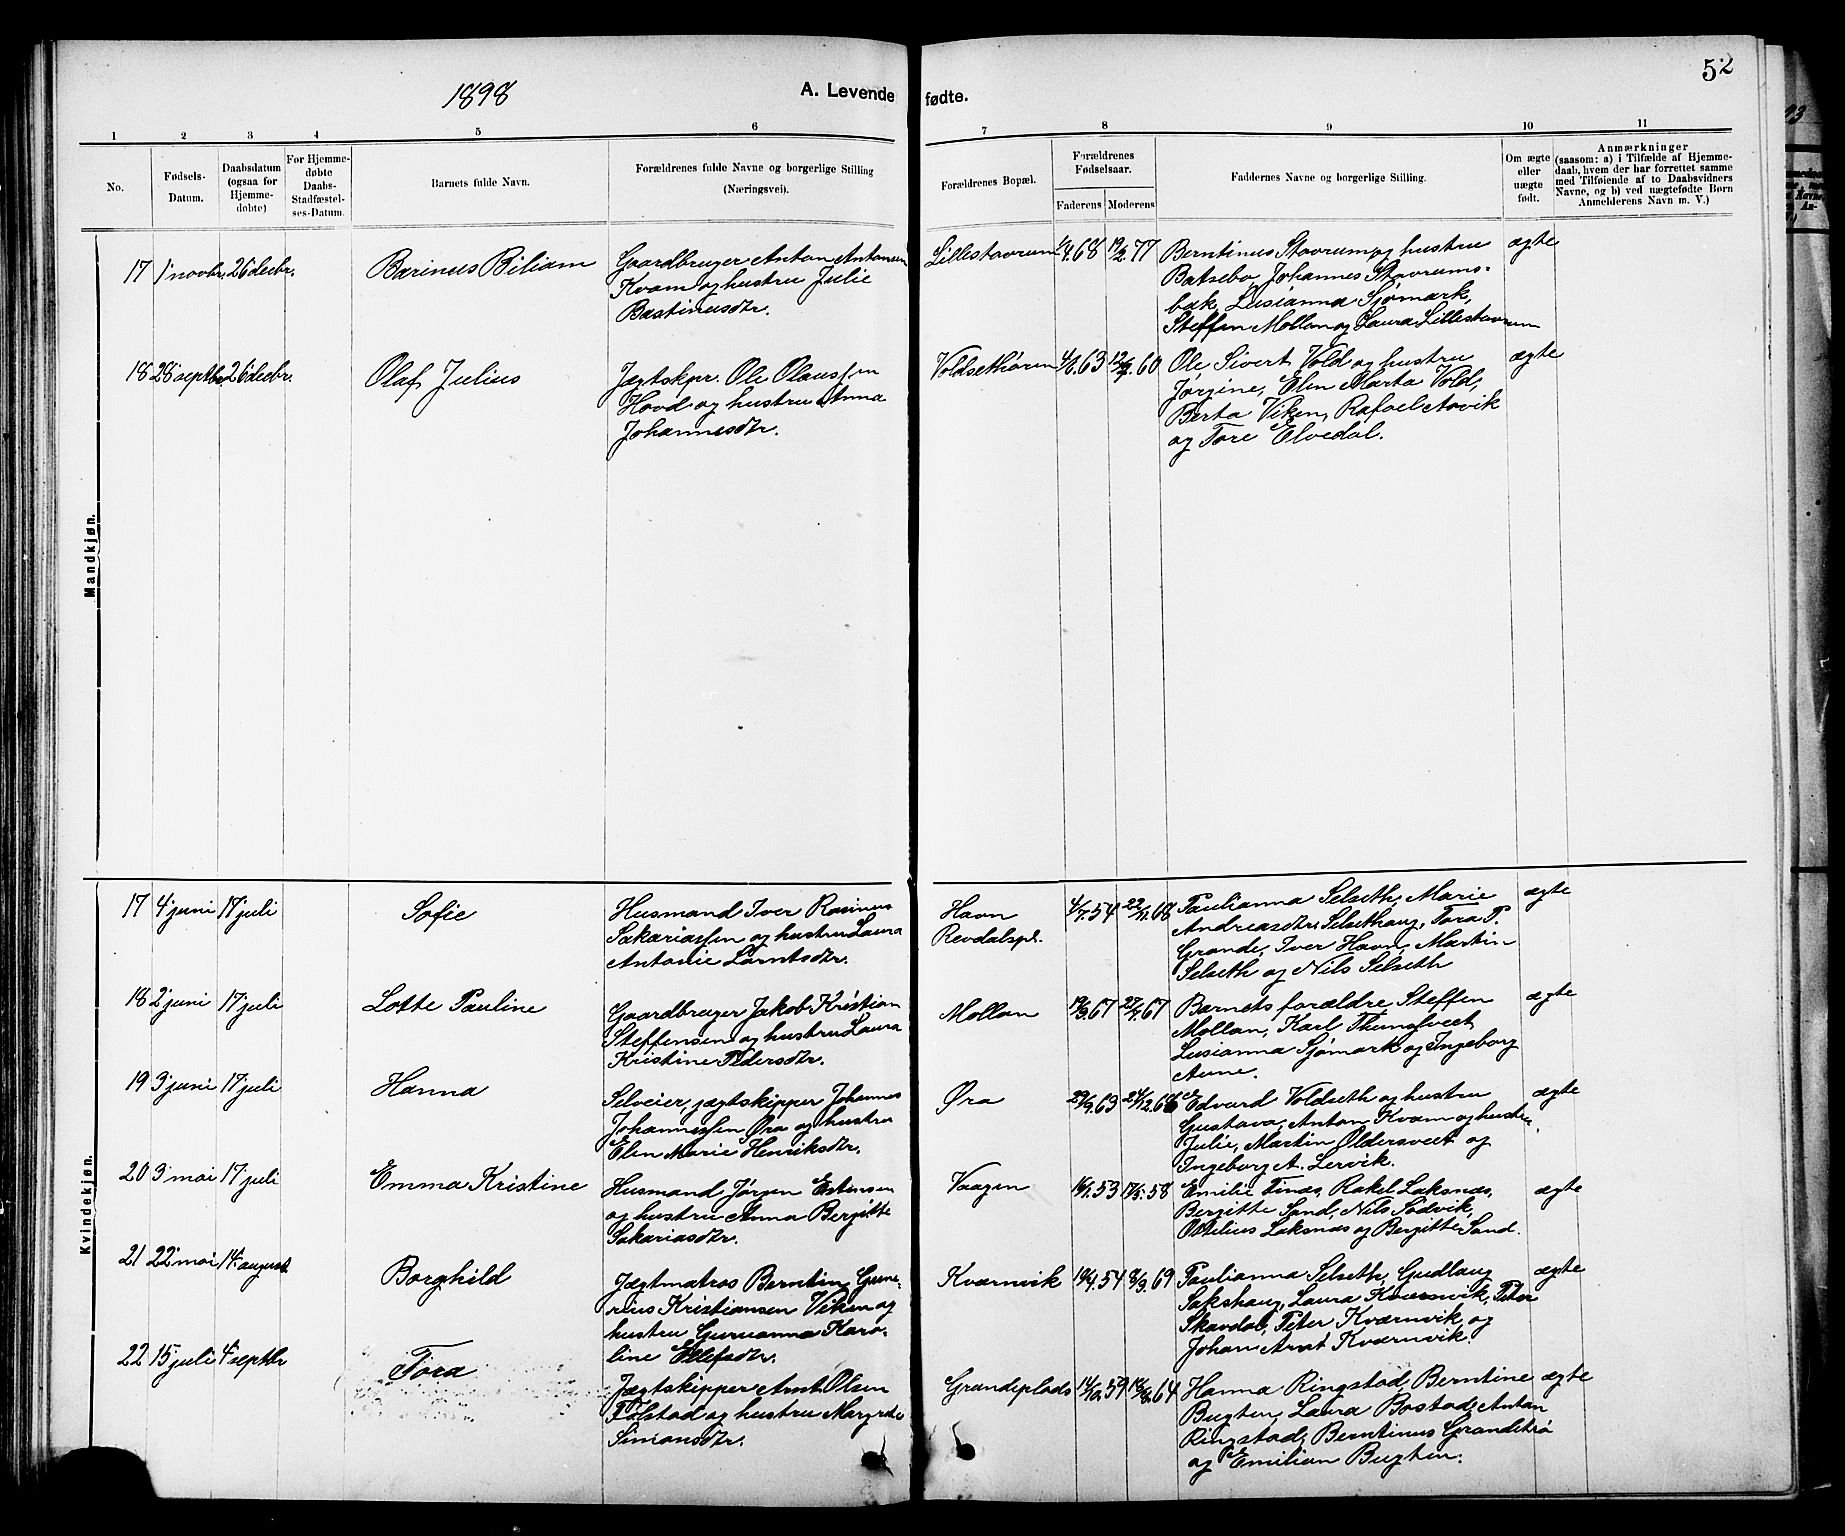 52
1898
A. Levende fødte.
1 2 3 4 5 6 7 8 9 10 11
No.
Fødsels-
Datum.
Daabsdatum
(ogsaa for
Hjemme-
døbte)
For Hjemme-
døbte
Daabs-
Stadfæstel-
ses-Datum.
Barnets fulde Navn.
Forældrenes fulde Navne og borgerlige Stilling
(Næringsvei).
Forældrenes Bopæl.
Forældrenes
Fødselsaar.
Faderens Moderens
Faddernes Navne og borgerlige Stilling.
Om ægte
eller
uægte
født.
Anmærkninger
(saasom: a) i Tilfælde af Hjemme-
daab, hvem der har forrettet samme
med Tilføiende af to Daabsvidners
Navne, og b) ved uægtefødte Børn
Anmelderens Navn m. V.)
Mandkjøn.
17 1 novbr. 26 decbr. Barinus Biliam
Gaardbruger Anton Antonsen
Kvam og hustru Julie
Bastinusdtr.
Lillestavrum 68 77
Berntinus Stavrum og hustru
Batseba, Johannes Stavrums-
bak, Lusianna Sjømark,
Steffen Mollan og Laura Lillestavrum
ægte
18 28 septbr. 26 decbr. Olaf Julius
Jægtskpr. Ole Olaussen
Hovd og hustru Anna
Johannesdtr.
Voldsethaven 63 60
Ole Sivert Vold og hustru
Jørgine, Elen Marta Vold,
Berta Viken, Rafael Aavik
og Tore Elvedal.
ægte
Kvindekjøn.
17 4 juni 17 juli Sofie
Husmand Iver Rasinus
Sakariassen og hustru Laura
Antonie Larntsdtr.
Havn
Revdalspl.
4/7.54 22/11.68
Paulianna Selseth, Marie
Andreasdtr. Selsethaug, Tora P.
Grande, Iver Havn, Martin
Selseth og Nils Selseth
ægte
18 2 juni 17 juli Lotte Pauline
Gaardbruger Jakob Kristian
Steffensen og hustru Laura
Kristine Pedersdtr.
Mollan 67 67
Barnets forældre Steffen
Mollan, Karl Thungtveet
Lusianna Sjømark og Ingeborg
Aune.
ægte
19 3 juni 17 juli Hanna
Selveier, jægtskipper Johannes
Johannessen Øra og hustru
Elen Marie Henriksdtr.
Øra 29/9.63 24/12.66
Edvard Voldseth og hustru
Gustava, Anton Kvam og hustru
Julie, Martin Oldersveet og
Ingeborg A. Lervik.
ægte
20 3 mai 17 juli Emma Kristine
Husmand Jørgen Estensen
og hustru Anna Bergitte
Sakariasdtr.
Vaagen 53 17/5.58
Emilie Tinas, Rakel Laksnæs,
Bergitte Sand, Nils Sødvik,
Ottilius Laksnæs og Bergitte Sand.
ægte
21 22 mai 14 august Borghild
Jægtmatros Berntin Gune-
rius Kristiansen Viken og
hustru Gurianna Karo-
line Ellefsdtr.
Kværnvik 54 8/3.69
Paulianna Selseth, Gudlaug
Sakshaug, Laura Kværnvik, Peter
Skavdal, Peter Kværnvik og
Johan Arnt Kværnvik.
ægte
22 15 juli 4 septbr Tora
Jægtskipper Arnt Olsen
Følstad og hustru Margrete
Simonsdtr.
Grandeplads 14/10.59 64
Hanna Ringstad, Berntine
Bugten, Laura Bostad, Anton
Ringstad, Berntinus Grandetrø
og Emilian Bugten.
ægte